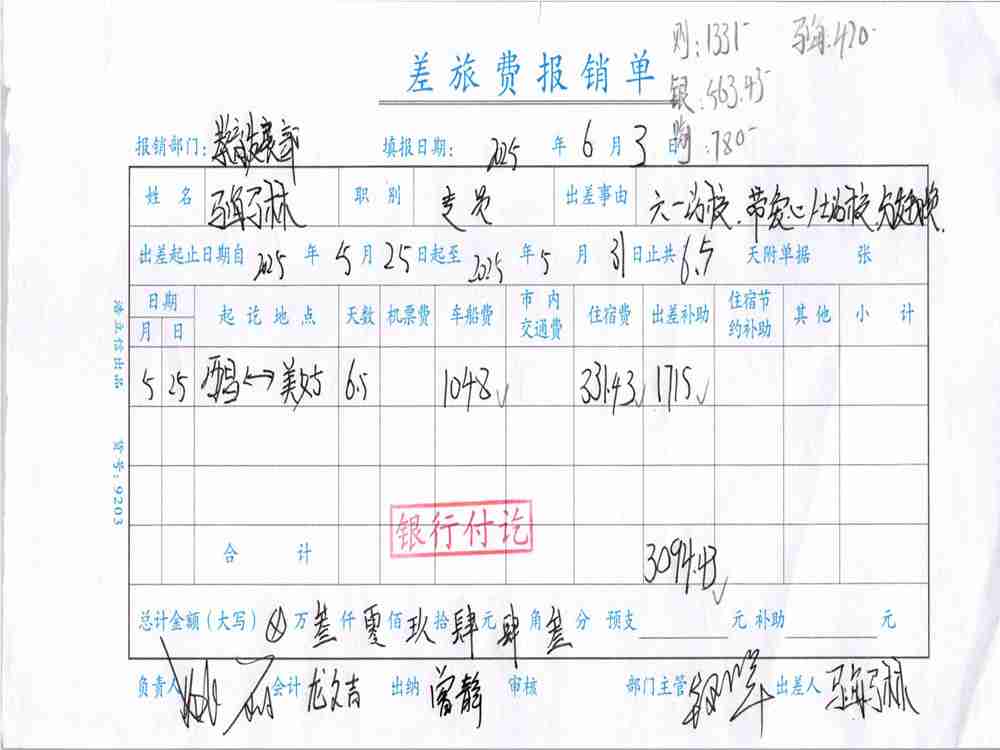 则:1331 马海:420
差旅费报销单
银:563.43
780
报销部门:教育发展部 填报日期: 2025 年 6 月 3 日
姓名 马海子林 职别 专员 出差事由 六一访校、带爱心人士访校
出差起止日期自 2025 年 5 月 25 日起至 2025 年 5 月 31 日止共 6.5 天附单据 张
日期 起讫地点 天数 机票费 车船费 市内交通费 住宿费 出差补助 住宿节约补助 其他 小计
月 日
5 25 西昌←→美姑 6.5 1048 331.43 1715
银行付讫
合计 3094.43
总计金额(大写) ⊗ 万 叁 仟 零 佰 玖 拾 肆 元 肆 角 叁 分 预支 元 补助 元
负责人 会计 龙文吉 出纳 曾静 审核 部门主管 出差人 马海子林
浩立信出品 货号:9203